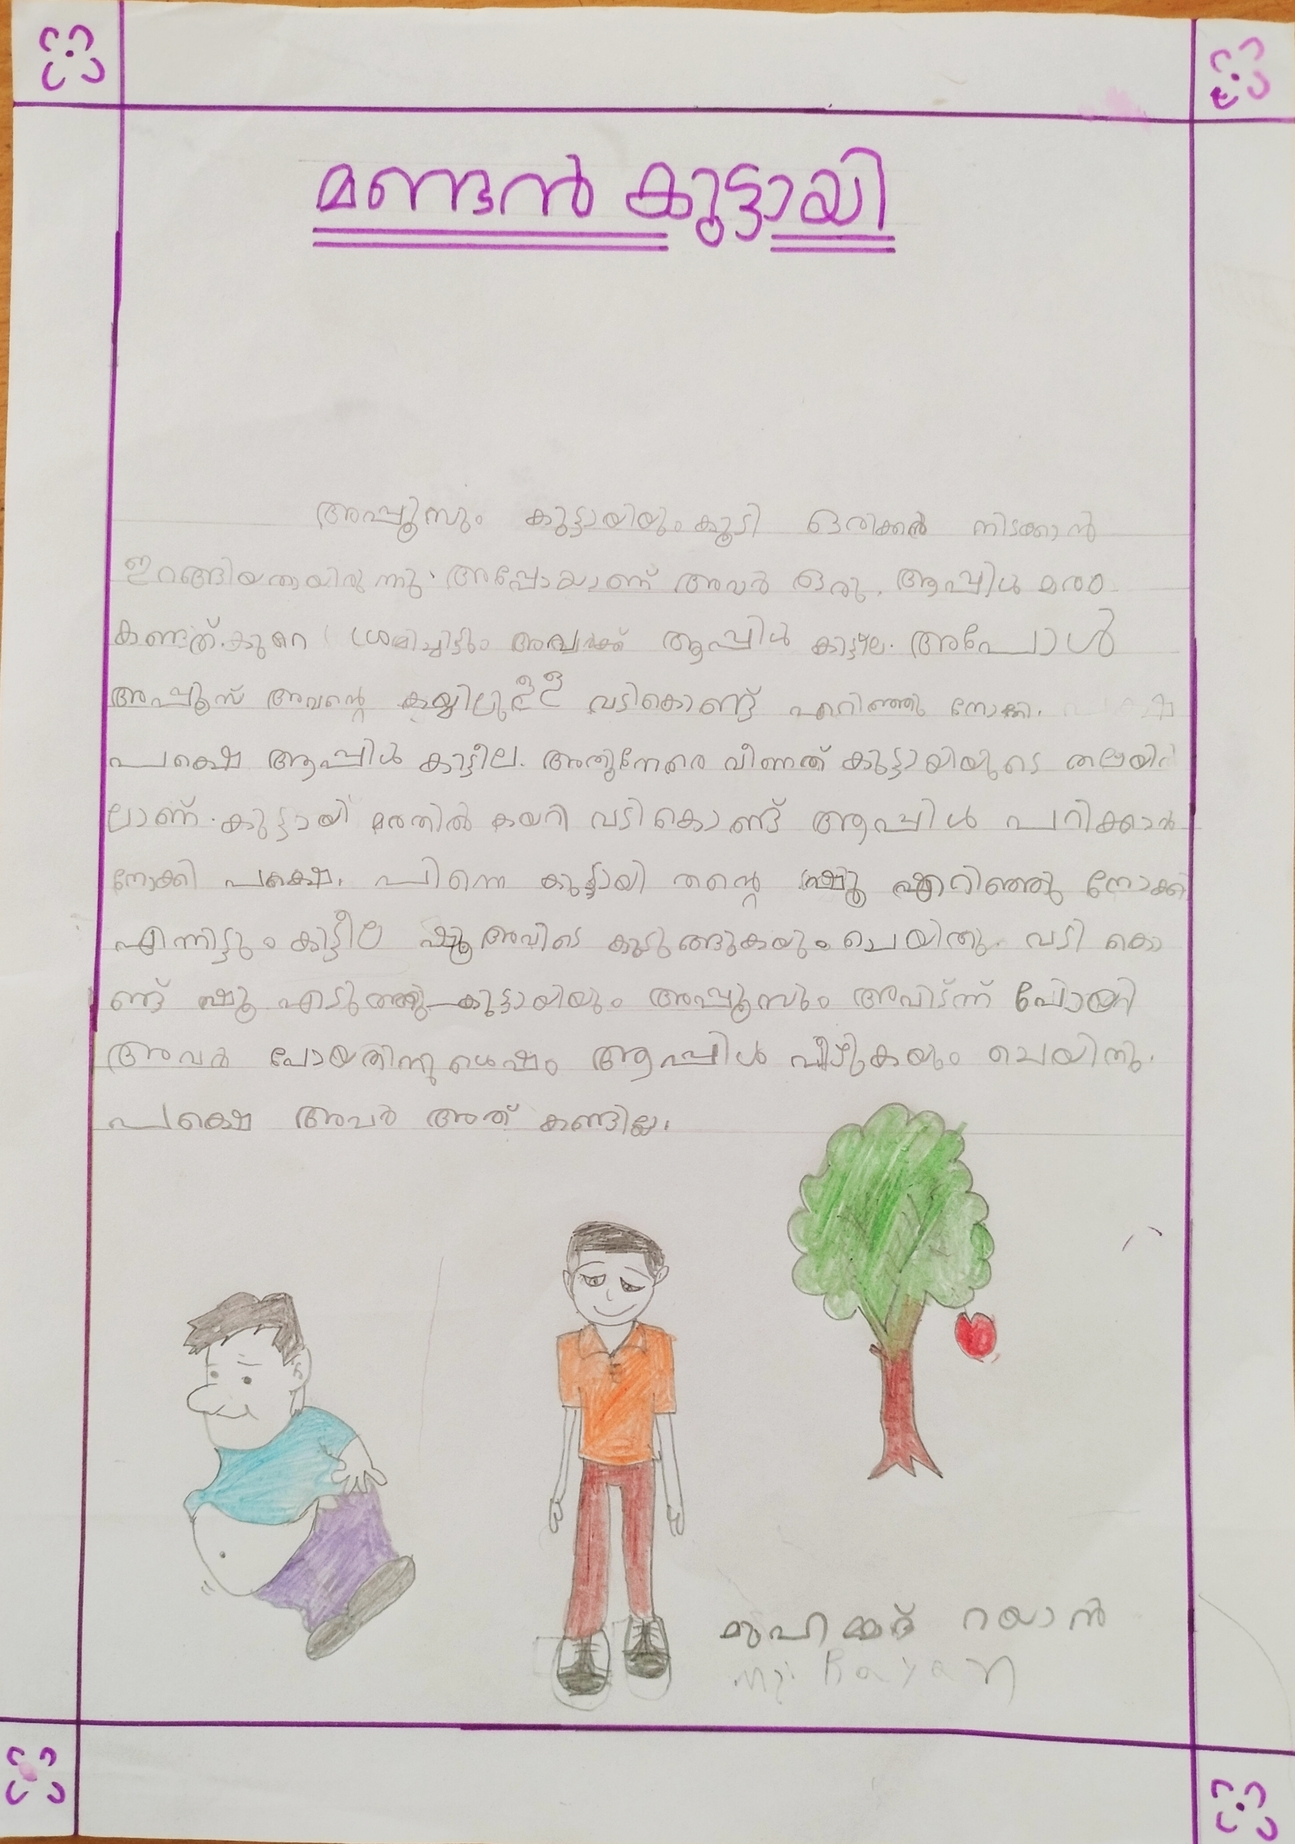 മണ്ടൻ കുട്ടായി
അപ്പൂസും കുട്ടായിയും കൂടി ഒരിക്കൽ നടക്കാൻ
ഇറങ്ങിയതായിരുന്നു. അപ്പോയാണ് അവർ ഒരു ആപ്പിൾ മരം
കണ്ടത്. കുറെ ശ്രമിച്ചിട്ടും അവർക്ക് ആപ്പിൾ കിട്ടീല. അപോൾ
അപ്പൂസ് അവന്റെ കയ്യിലുള്ള വടികൊണ്ട് എറിഞ്ഞു നോക്കി.
പക്ഷെ ആപ്പിൾ കിട്ടീല. അതുനേരെ വീണത് കുട്ടായിയുടെ തലയി
ലാണ്. കുട്ടായി മരതിൽ കയറി വടി കൊണ്ട് ആപ്പിൾ പറിക്കാൻ
നോക്കി പക്ഷെ. പിന്നെ കുട്ടായി തന്റെ ഷൂ എറിഞ്ഞു നോക്കി
എന്നിട്ടും കിട്ടീല ഷൂ അവിടെ കുടുങ്ങുകയും ചെയിതു. വടി കൊ
ണ്ട് ഷൂ എടുത്തു കുട്ടായിയും അപ്പൂസും അവിട്ന്ന് പോയി
അവർ പോയതിന്നു ശേഷം ആപ്പിൾ വീഴുകയും ചെയിതു.
പക്ഷെ അവർ അത് കണ്ടില്ല.
മുഹമ്മദ് റയാൻ
Rayan